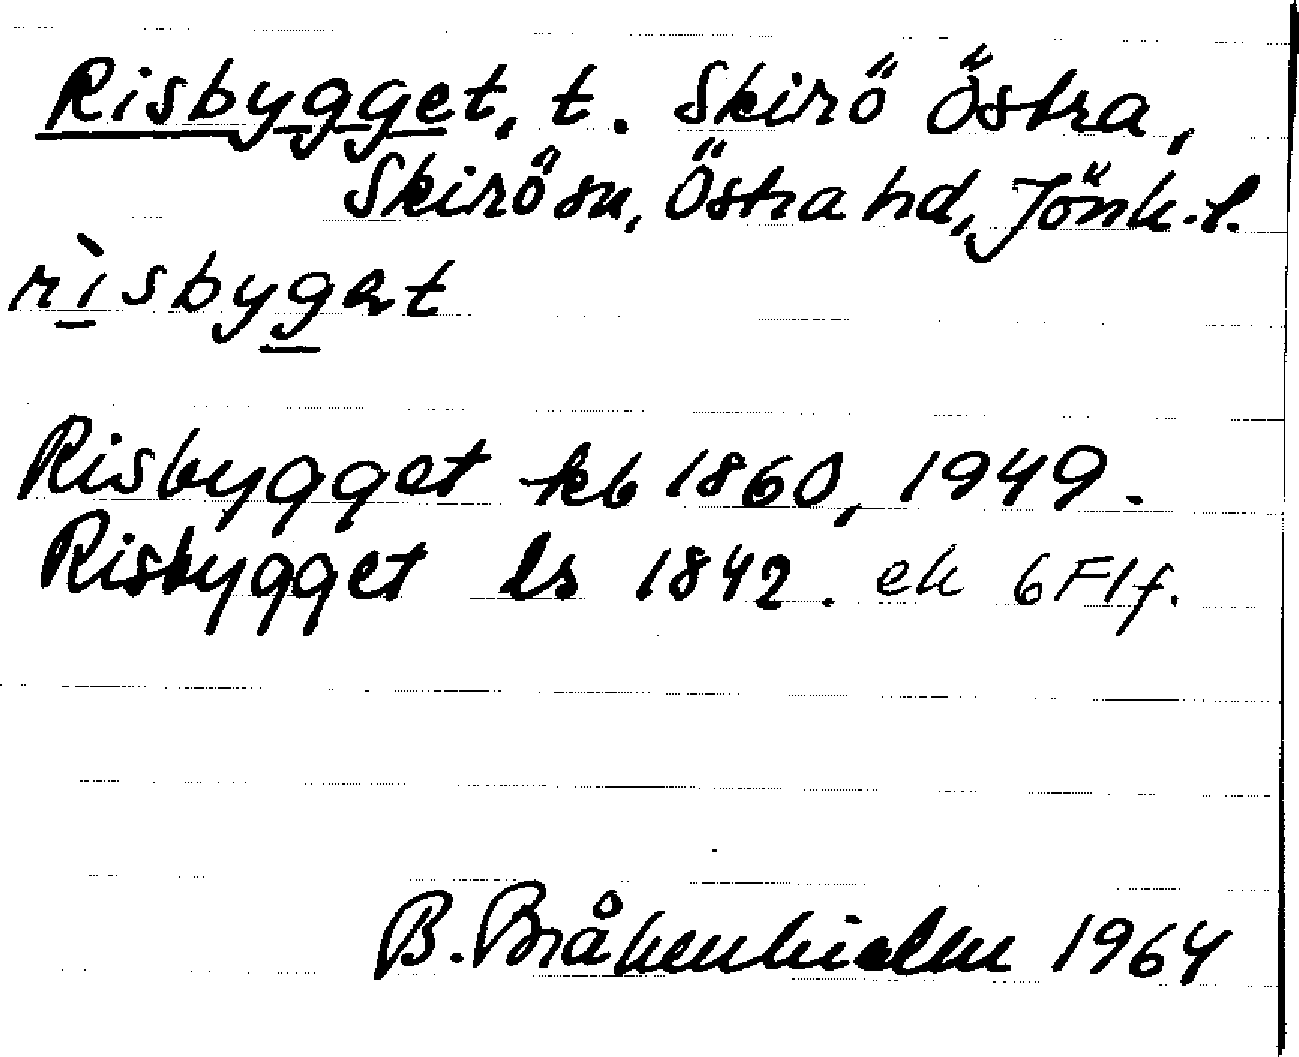 Risbygget, t. Skirö Östra,
Skirö sn, Östra hd, Jönk. l.
rìsbygət
Risbygget kb 1860, 1949.
Risbygget ls 1842. ek 6F1f.
B. Bråkenhielm 1964